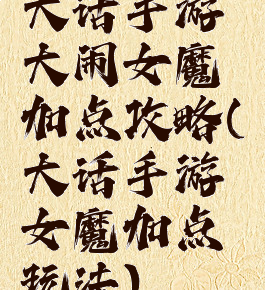 大话手游
大闹女魔
加点攻略(
大话手游
女魔加点
玩法)